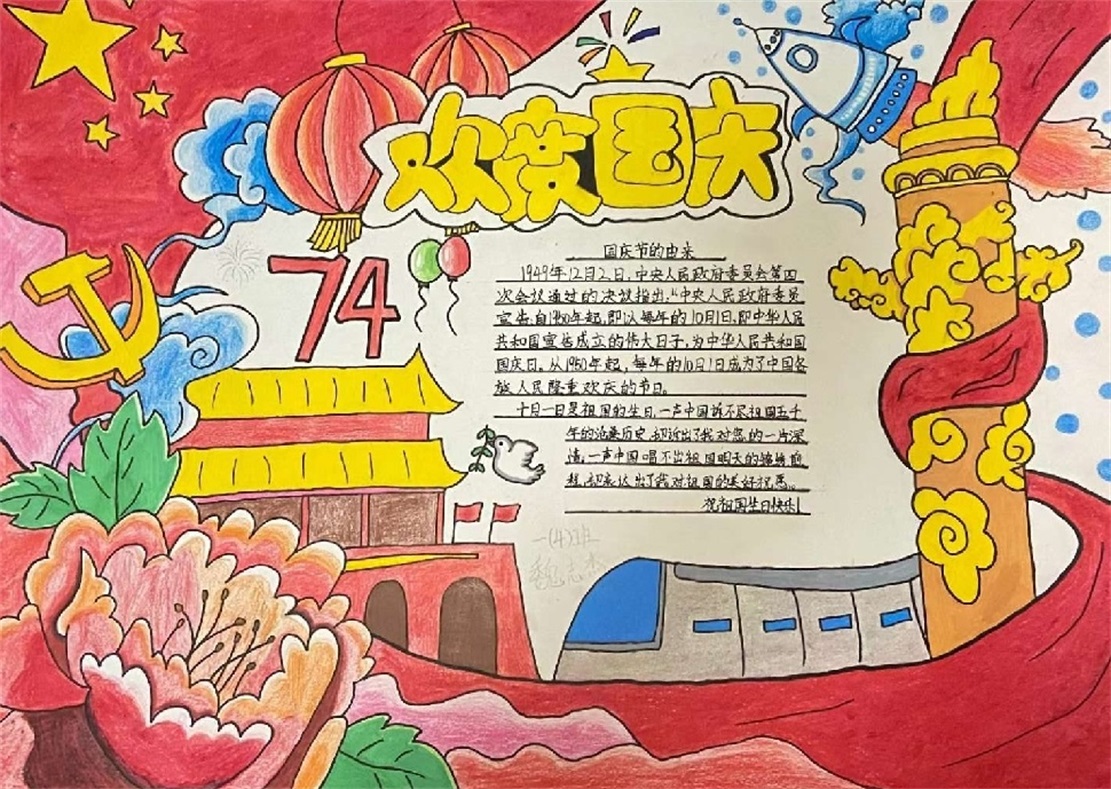 欢度国庆
74
国庆节的由来
1949年12月2日,中央人民政府委员会第四
次会议通过的决议指出:“中央人民政府委员
宣告:自1950年起,即以每年的10月1日,即中华人民
共和国宣告成立的伟大日子,为中华人民共和国
国庆日。从1950年起,每年的10月1日成为了中国各
族人民隆重欢庆的节日。
十月一日是祖国的生日,一声中国诉不尽祖国五千
年的沧桑历史,却诉出了我对您的一片深
情,一声中国唱不出祖国明天的锦绣前
程,却表达出了我对祖国的美好祝愿。
祝祖国生日快乐!
一(4)班
魏志杰